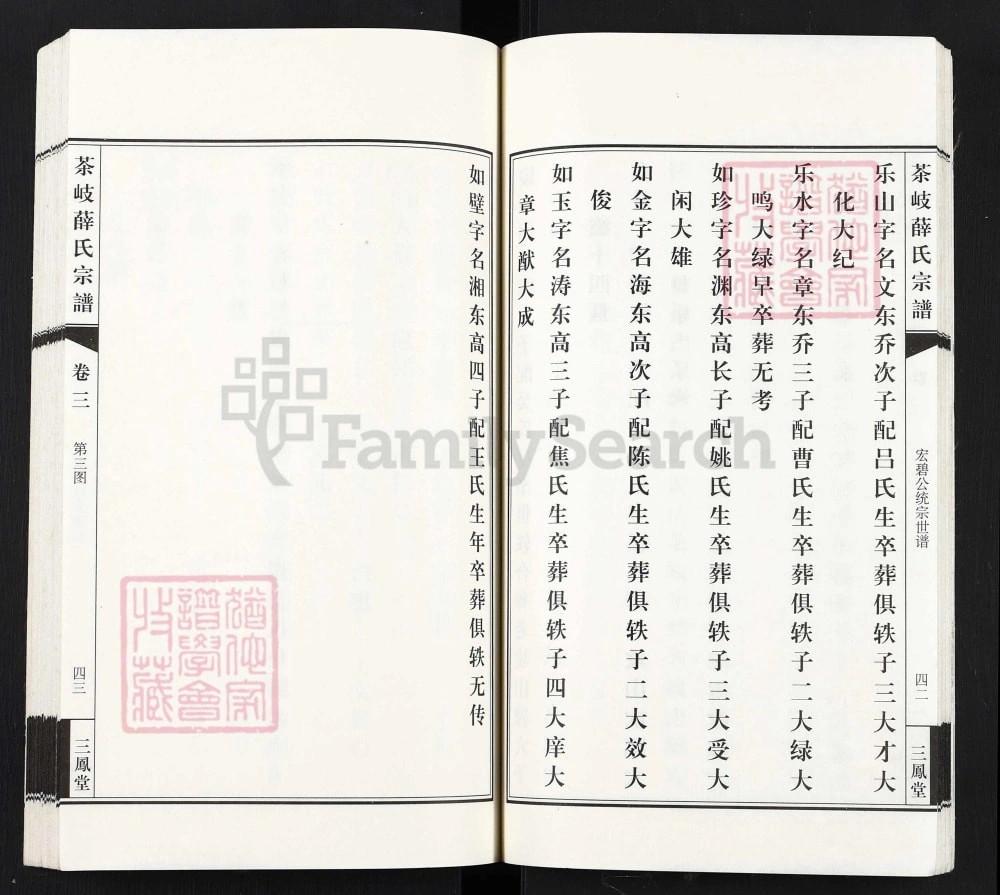 茶岐薛氏宗譜
宏碧公统宗世谱
四二
三鳳堂
乐山字名文东乔次子配吕氏生卒葬俱轶子三大才大
化大纪
乐水字名章东乔三子配曹氏生卒葬俱轶子二大绿大
鸣大绿早卒葬无考
如珍字名渊东高长子配姚氏生卒葬俱轶子三大受大
闲大雄
如金字名海东高次子配陈氏生卒葬俱轶子二大效大
俊
如玉字名涛东高三子配焦氏生卒葬俱轶子四大庠大
章大猷大成
如壁字名湘东高四子配王氏生年卒葬俱轶无传
茶岐薛氏宗譜
卷三
第三图
四三
三鳳堂
FamilySearch